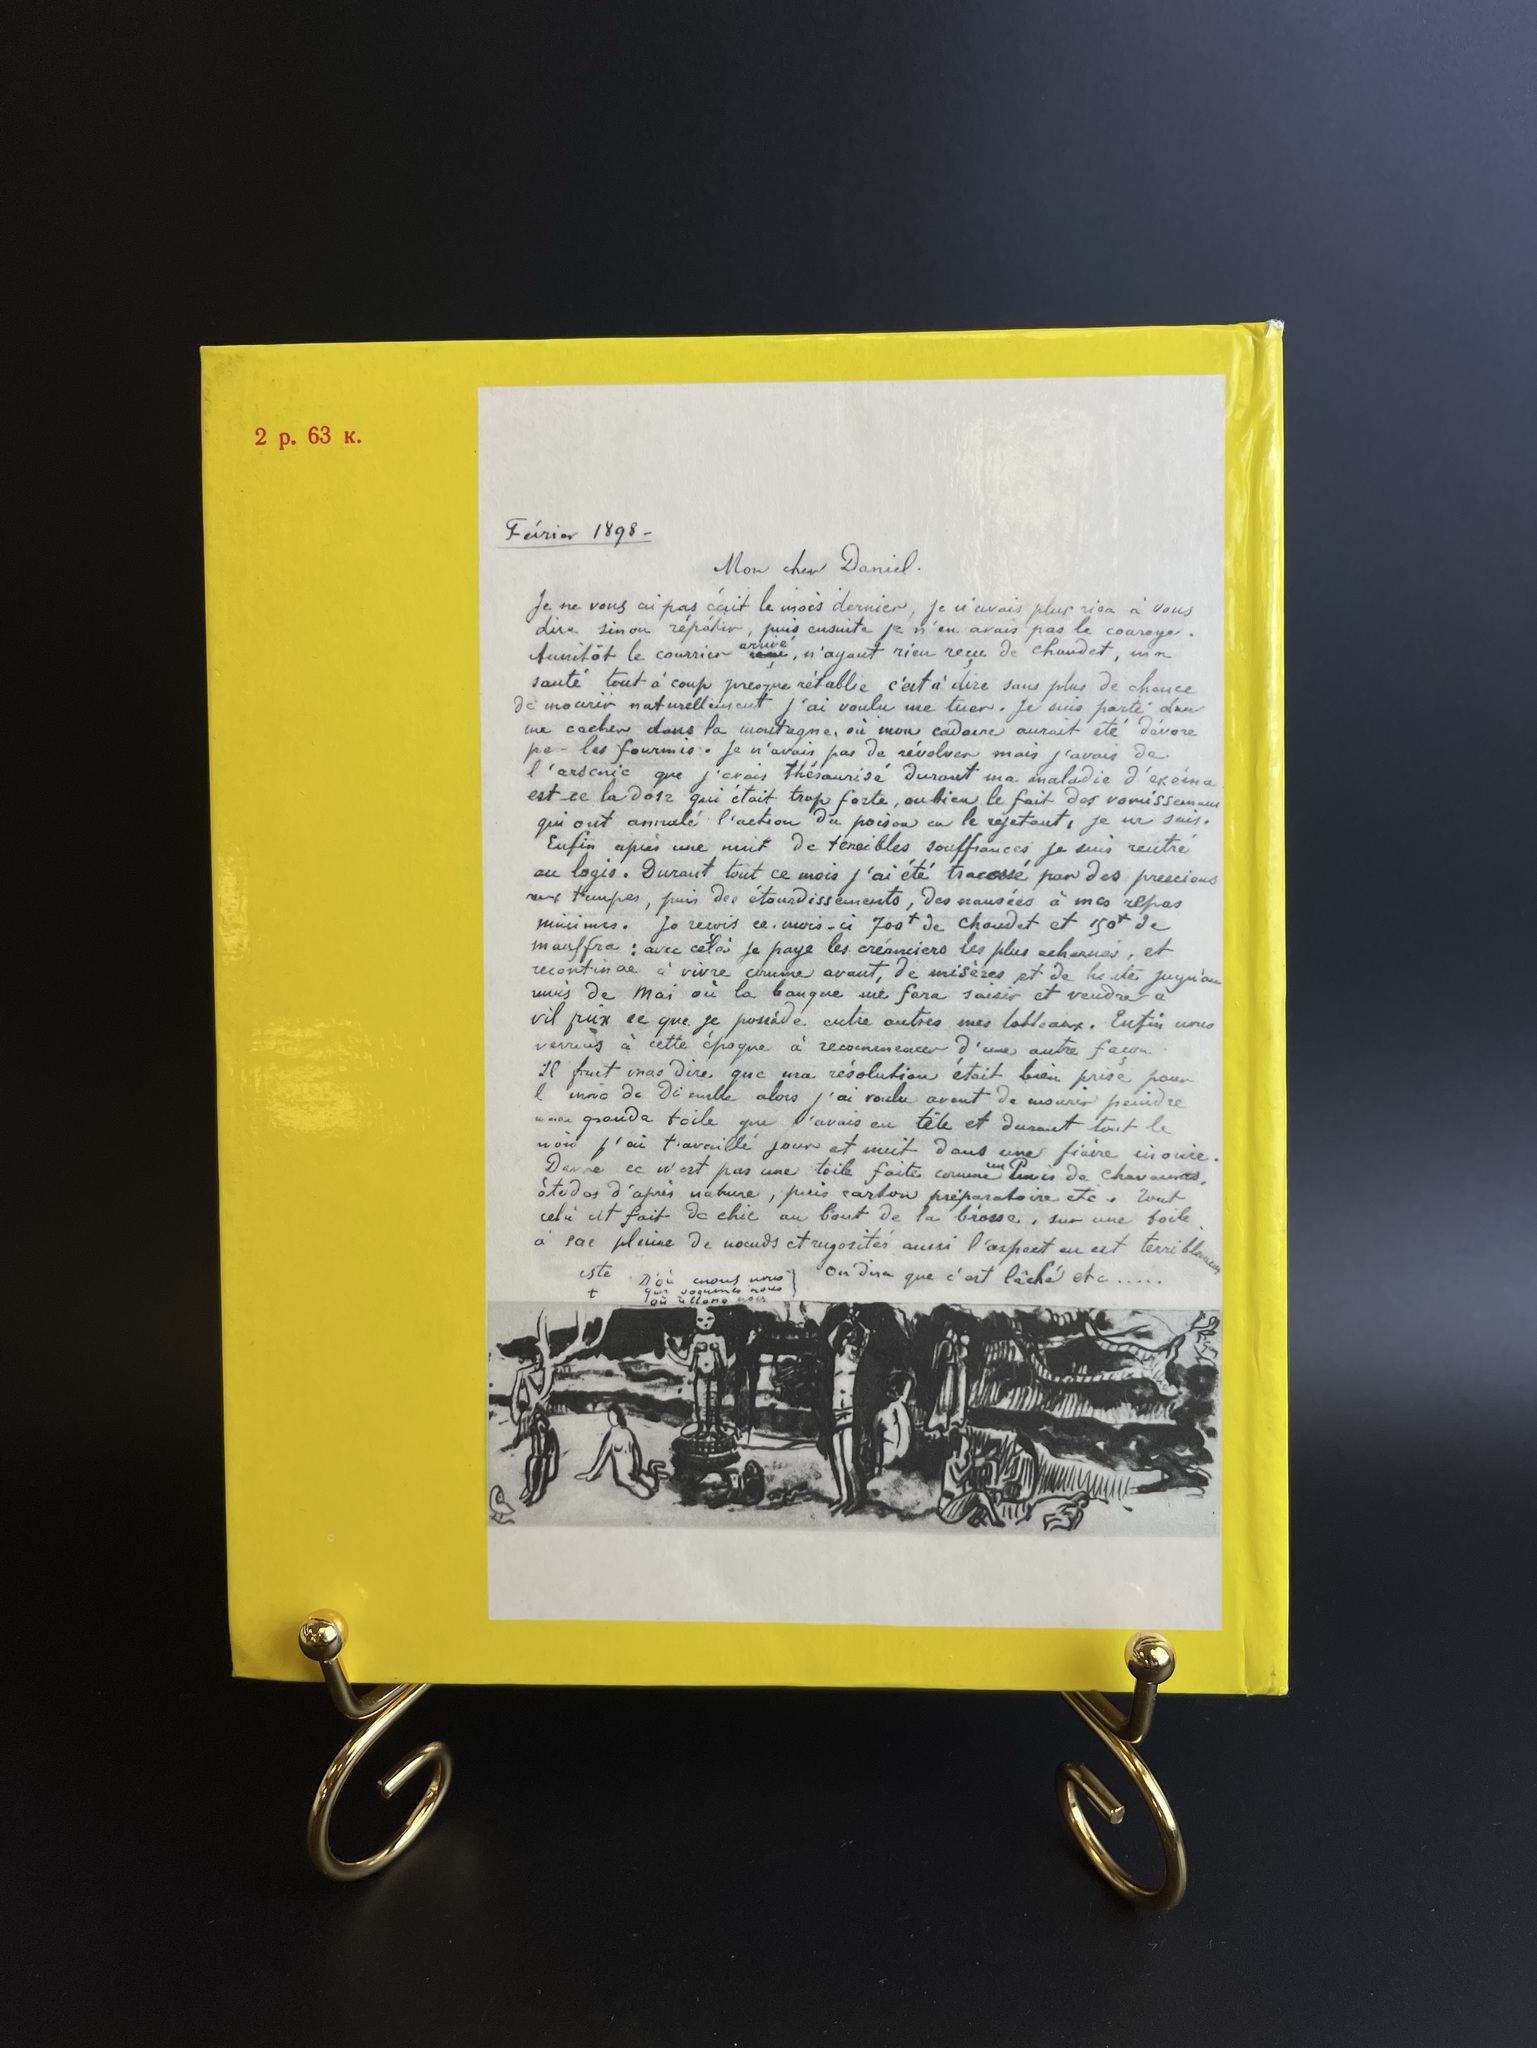 2 р. 63 к.
Février 1898 -
Mon cher Daniel.
Je ne vous ai pas écrit le mois dernier, je n'avais plus rien à vous
dire sinon répéter, puis ensuite je n'en avais pas le courage.
Aussitôt le courrier arrivé, n'ayant rien reçu de Chaudet, ma
santé tout à coup presque rétablie c'est à dire sans plus de chance
de mourir naturellement j'ai voulu me tuer. Je suis parti
me cacher dans la montagne, où mon cadavre aurait été dévoré
par les fourmis. Je n'avais pas de révolver mais j'avais de
l'arsenic que j'avais thésaurisé durant ma maladie d'exéma
est-ce la dose qui était trop forte, ou bien le fait des vomissements
qui ont annulé l'action du poison en le rejetant, je ne sais.
Enfin après une nuit de terribles souffrances je suis rentré
au logis. Durant tout ce mois j'ai été tracassé par des pressions
aux tempes, puis des étourdissements, des nausées à mes repas
minimes. Je reçois ce mois-ci 700f de Chaudet et 150f de
Mauffra : avec celà je paye les créanciers les plus acharnés, et
recontinue à vivre comme avant, de misères et de honte jusqu'au
mois de Mai où la banque me fera saisir et vendre à
vil prix ce que je possède entre autres mes tableaux. Enfin nous
verrons à cette époque à recommencer d'une autre façon.
Il faut vous dire que ma résolution était bien prise pour
le mois de Décembre alors j'ai voulu avant de mourir peindre
une grande toile que j'avais en tête et durant tout le
mois j'ai travaillé jour et nuit dans une fièvre inouie.
Dame ce n'est pas une toile faite comme un Puvis de Chavannes,
études d'après nature, puis carton préparatoire etc. Tout
celà est fait de chic au bout de la brosse, sur une toile
à sac pleine de nœuds et rugosités aussi l'aspect en est terriblement
On dira que c'est lâché etc.....
D'où venons nous
que sommes nous
où allons nous